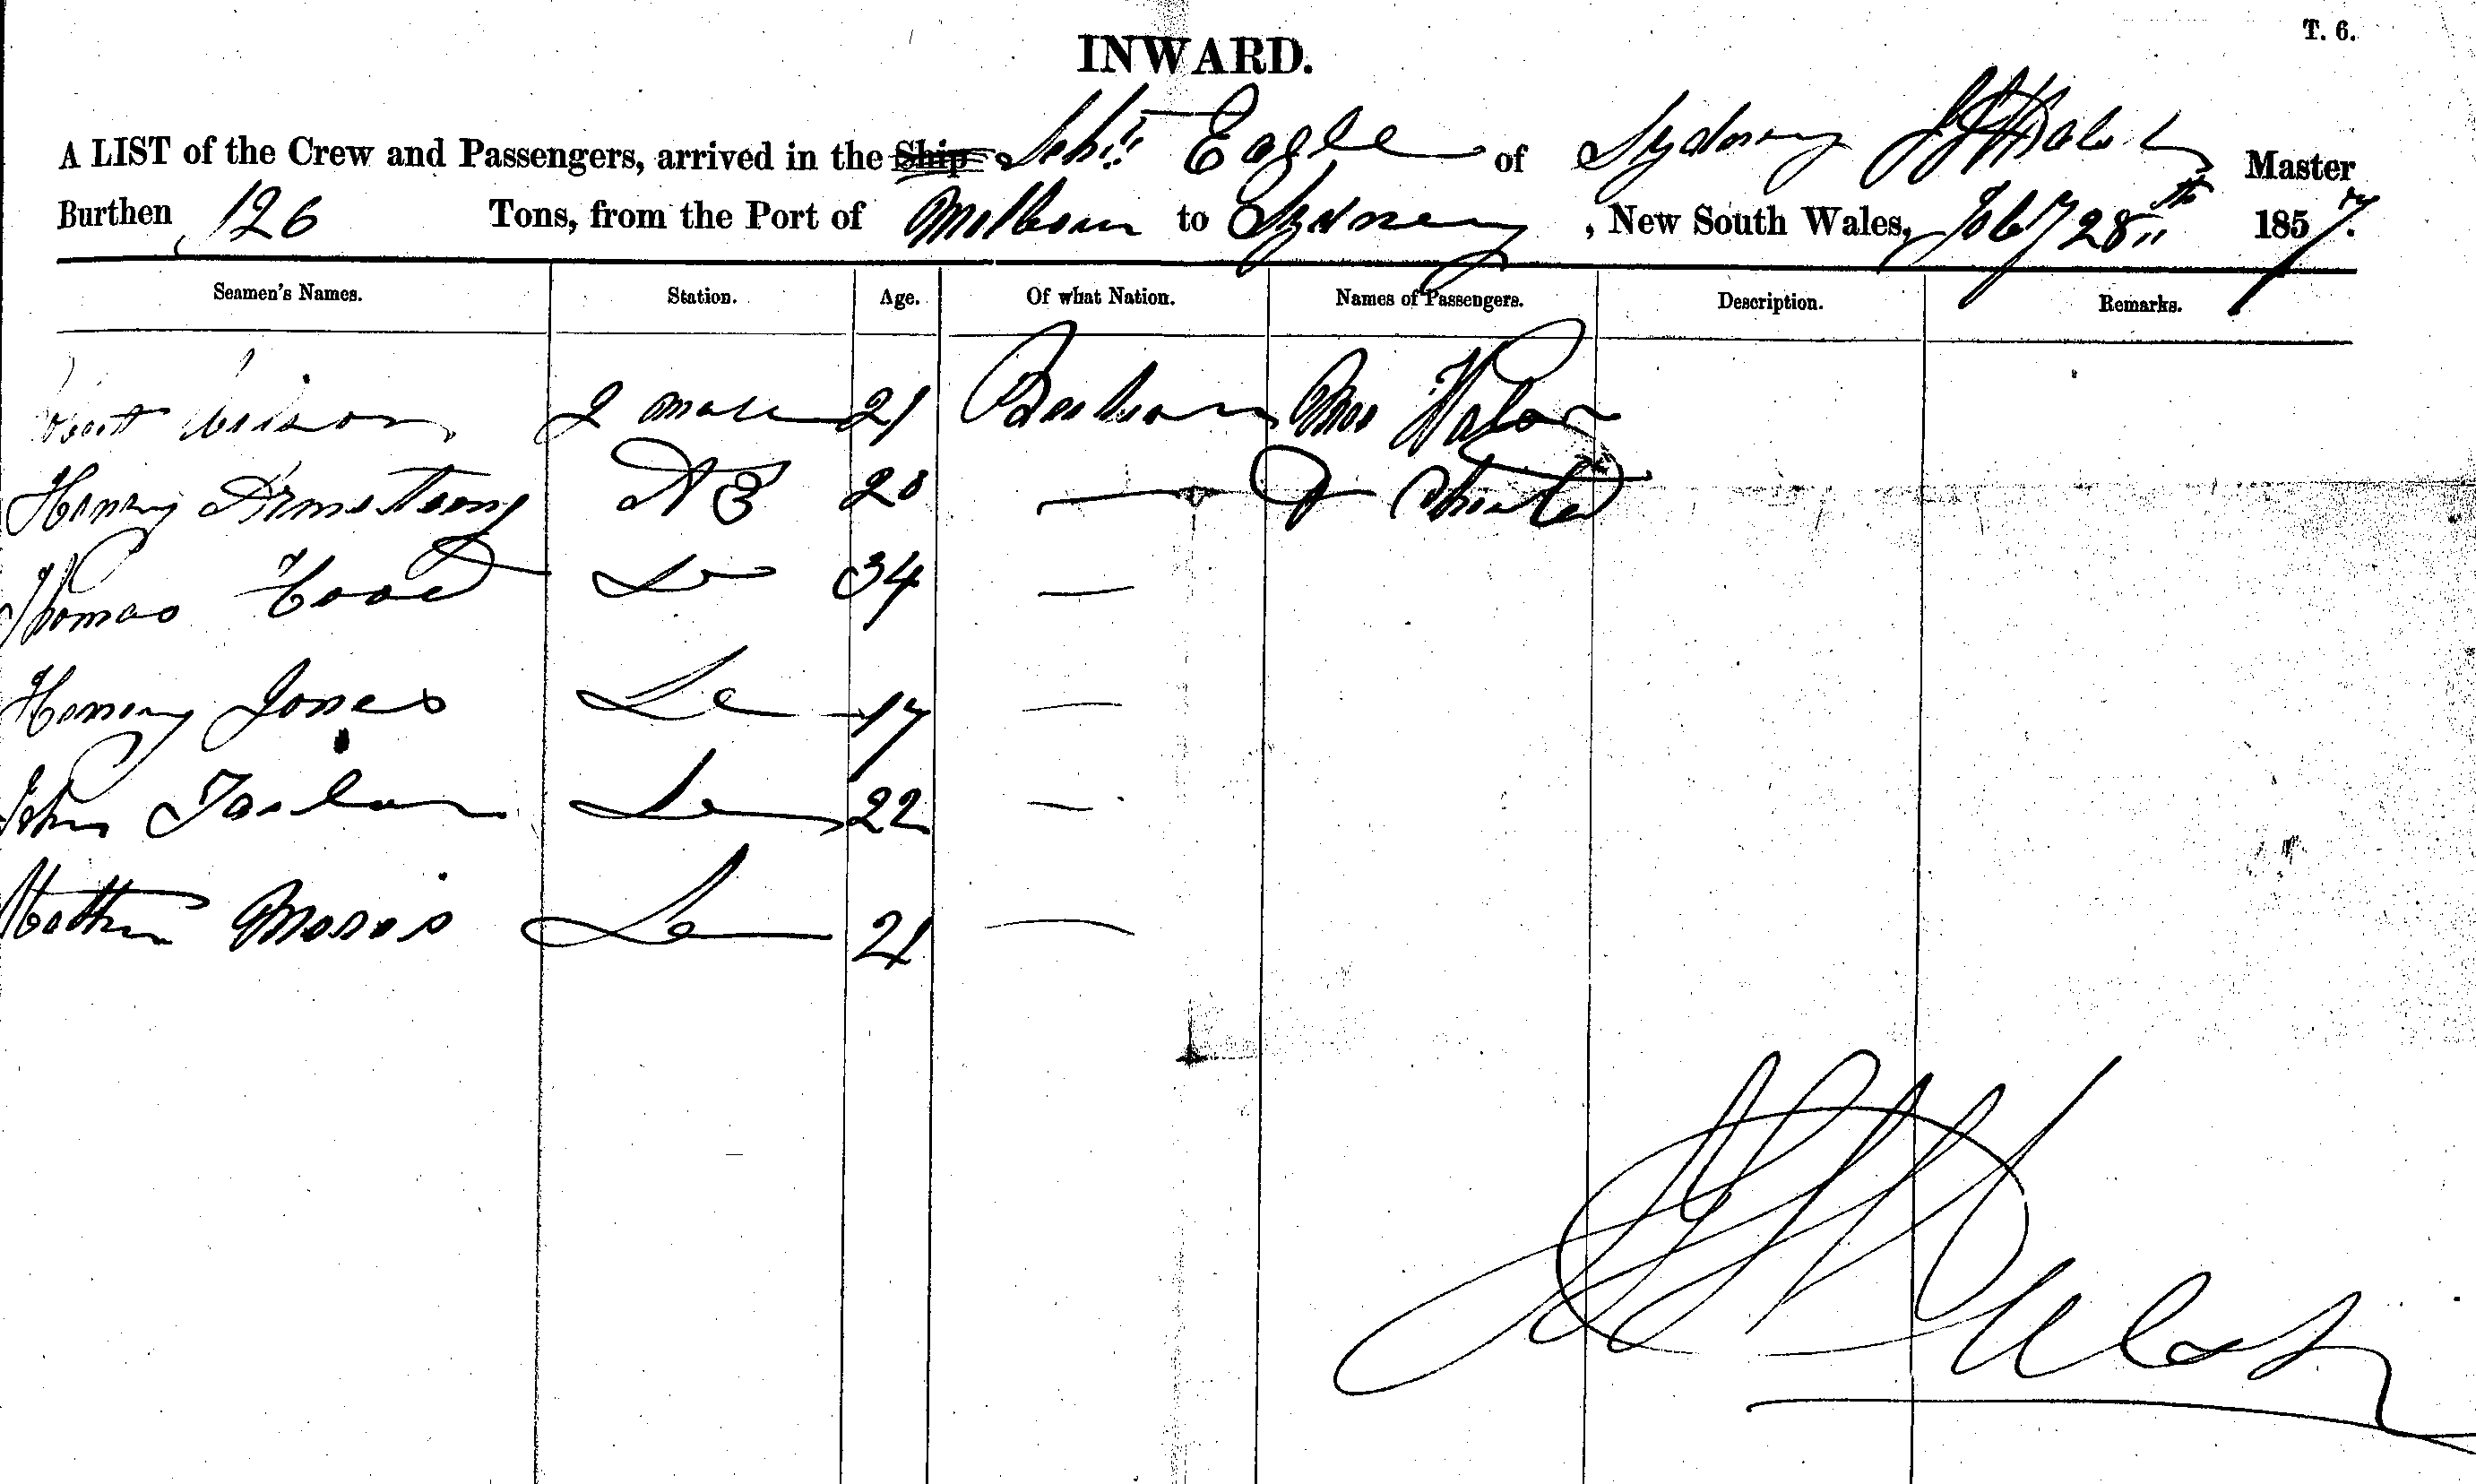 T. 6.
INWARD.
A LIST of the Crew and Passengers, arrived in the Ship Schr Eagle of Sydney Master
Burthen 126 Tons, from the Port of Melbourn to Sydney, New South Wales, Feby 28th 1857.
Seamen's Names. Station. Age. Of what Nation. Names of Passengers. Description. Remarks.
2 mate 21 Mrs
Henry Armstrong AB 20 —
Thomas Hood Do 34 —
Henry Jones Do 17 —
John Do 22 —
Matthew Moris Do 21 —